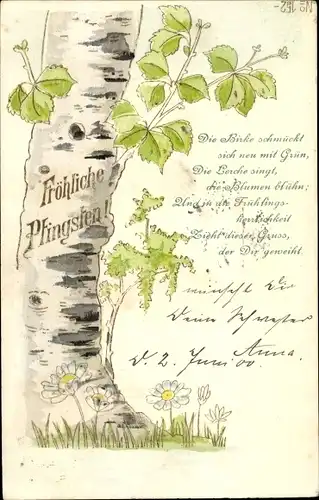 No 152-
Fröhliche
Pfingsten!
Die Birke schmückt
sich neu mit Grün,
Die Lerche singt,
die Blumen blühn;
Und in die Frühlings-
herrlichkeit
Zieht dieser Gruss,
der Dir geweiht.
wünscht Dir
Deine Schwester
Anna.
D. 2. Juni 00.